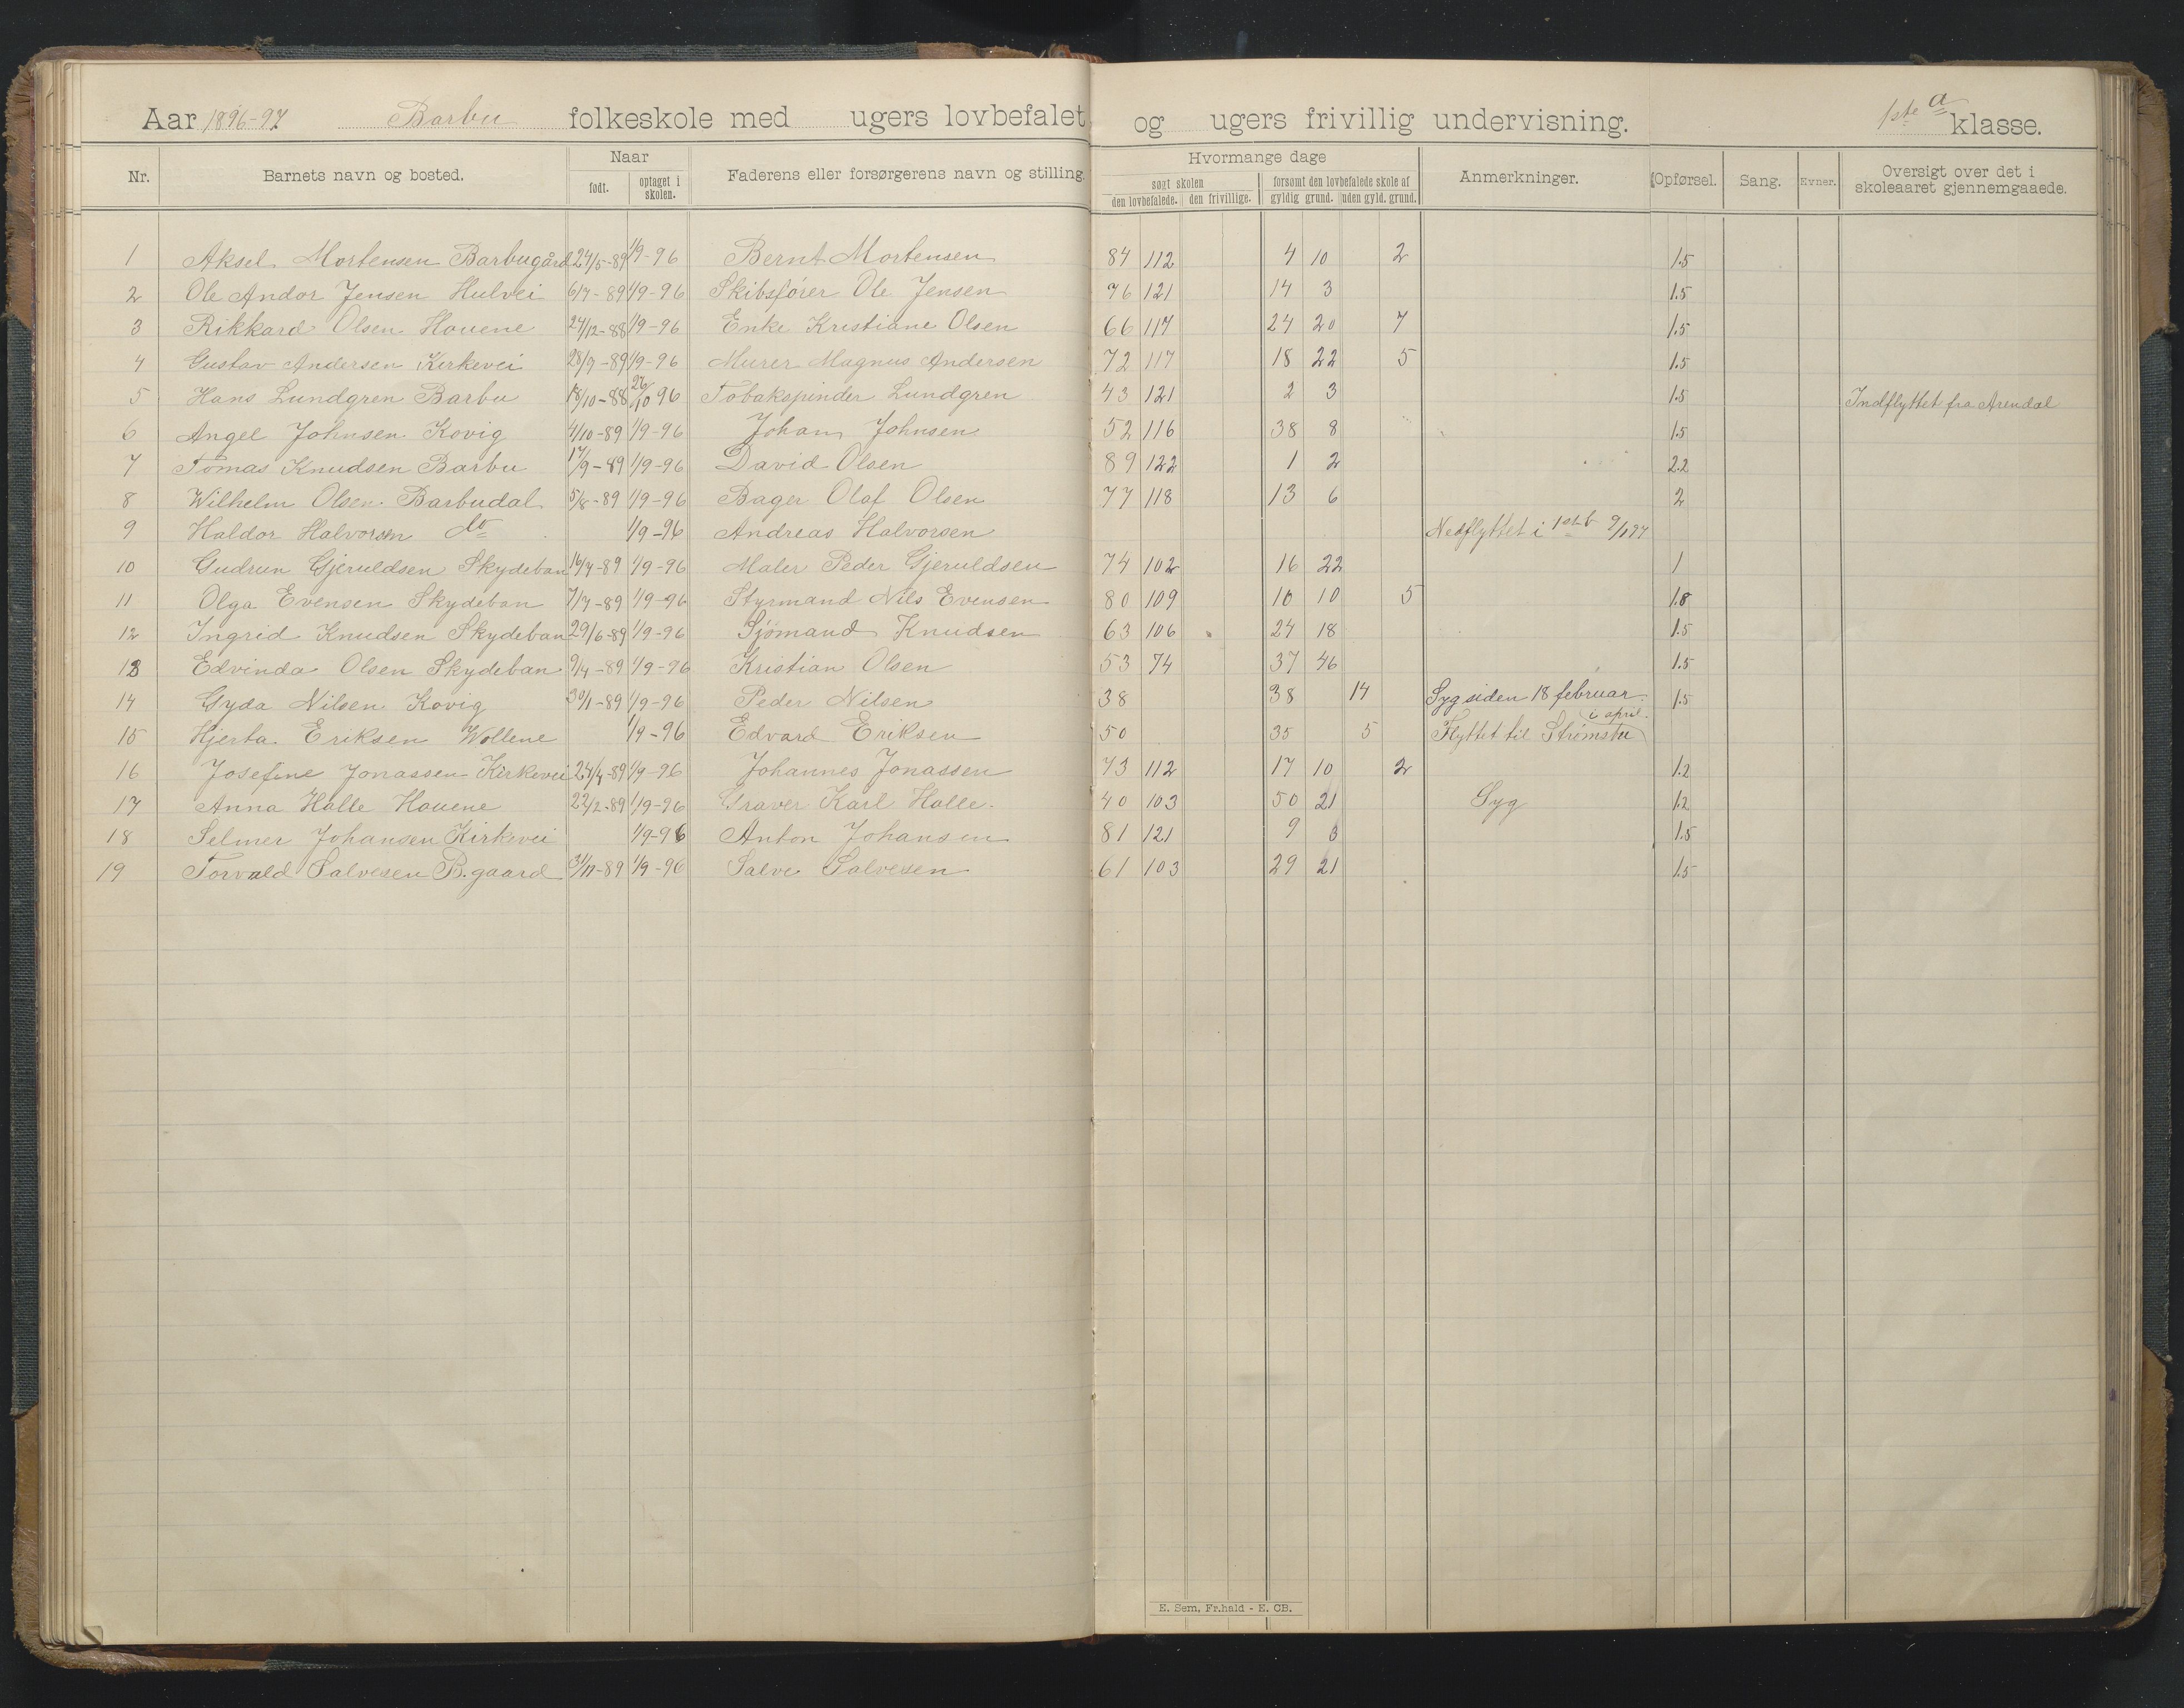 Aar 1896-97 Barbu folkeskole med ugers lovbefalet og ugers frivillig undervisning. 1ste a klasse.
Nr. Barnets navn og bosted. Naar født. optaget i skolen. Faderens eller forsørgerens navn og stilling. Hvormange dage søgt skolen den lovbefalede. den frivillige. forsømt den lovbefalede skole af gyldig grund. uden gyld. grund. Anmerkninger. Opførsel. Sang. Evner. Oversigt over det i skoleaaret gjennemgaaede.
1 Aksel Mortensen Barbugård 24/5-89 1/9-96 Bernt Mortensen 84 112 4 10 2 1.5
2 Ole Andor Jensen Hulvei 6/7-89 1/9-96 Skibsfører Ole Jensen 76 121 14 3 1.5
3 Rikkard Olsen Houene 24/12-88 1/9-96 Enke Kristiane Olsen 66 117 24 20 7 1.5
4 Gustav Andersen Kirkevei 28/9-89 1/9-96 Murer Magnus Andersen 72 117 18 22 5 1.5
5 Hans Lundgren Barbu 18/10-88 26/10 96 Tobakspinder Lundgren 43 121 2 3 1.5 Indflyttet fra Arendal
6 Angel Johnsen Kovig 4/10-89 1/9-96 Johan Johnsen 52 116 38 8 1.5
7 Tomas Knudsen Barbu 17/9-89 1/9-96 David Olsen 89 122 1 2 2.2
8 Wilhelm Olsen Barbudal 5/8-89 1/9-96 Bager Olaf Olsen 77 118 13 6 2
9 Haldor Halvorsen do 1/9-96 Andreas Halvorsen Nedflyttet i 1ste b 9/1 97
10 Gudrun Gjeruldsen Skydeban 16/7-89 1/9-96 Maler Peder Gjeruldsen 74 102 16 22 1
11 Olga Evensen Skydeban 7/7-89 1/9-96 Styrmand Nils Evensen 80 109 10 10 5 1.8
12 Ingrid Knudsen Skydeban 29/6-89 1/9-96 Sjömand Knudsen 63 106 24 18 1.5
13 Edvinda Olsen Skydeban 9/4-89 1/9-96 Kristian Olsen 53 74 37 46 1.5
14 Gyda Nilsen Kovig 30/1-89 1/9-96 Peder Nilsen 38 38 14 Syg siden 18 februar. 1.5
15 Hjerta Eriksen Wollene 1/9-96 Edvard Eriksen 50 35 5 Flyttet til Strømsbu i april.
16 Josefine Jonassen Kirkevei 24/4-89 1/9-96 Johannes Jonassen 73 112 17 10 2 1.2
17 Anna Halle Houene 22/2-89 1/9-96 Graver Karl Halle. 40 103 50 21 Syg 1.2
18 Selmer Johansen Kirkevei 1/9-96 Anton Johansen 81 121 9 3 1.5
19 Torvald Salvesen B.gaard 31/11-89 1/9-96 Salve Salvesen 61 103 29 21 1.5
E. Sem, Fr.hald - E. CB.